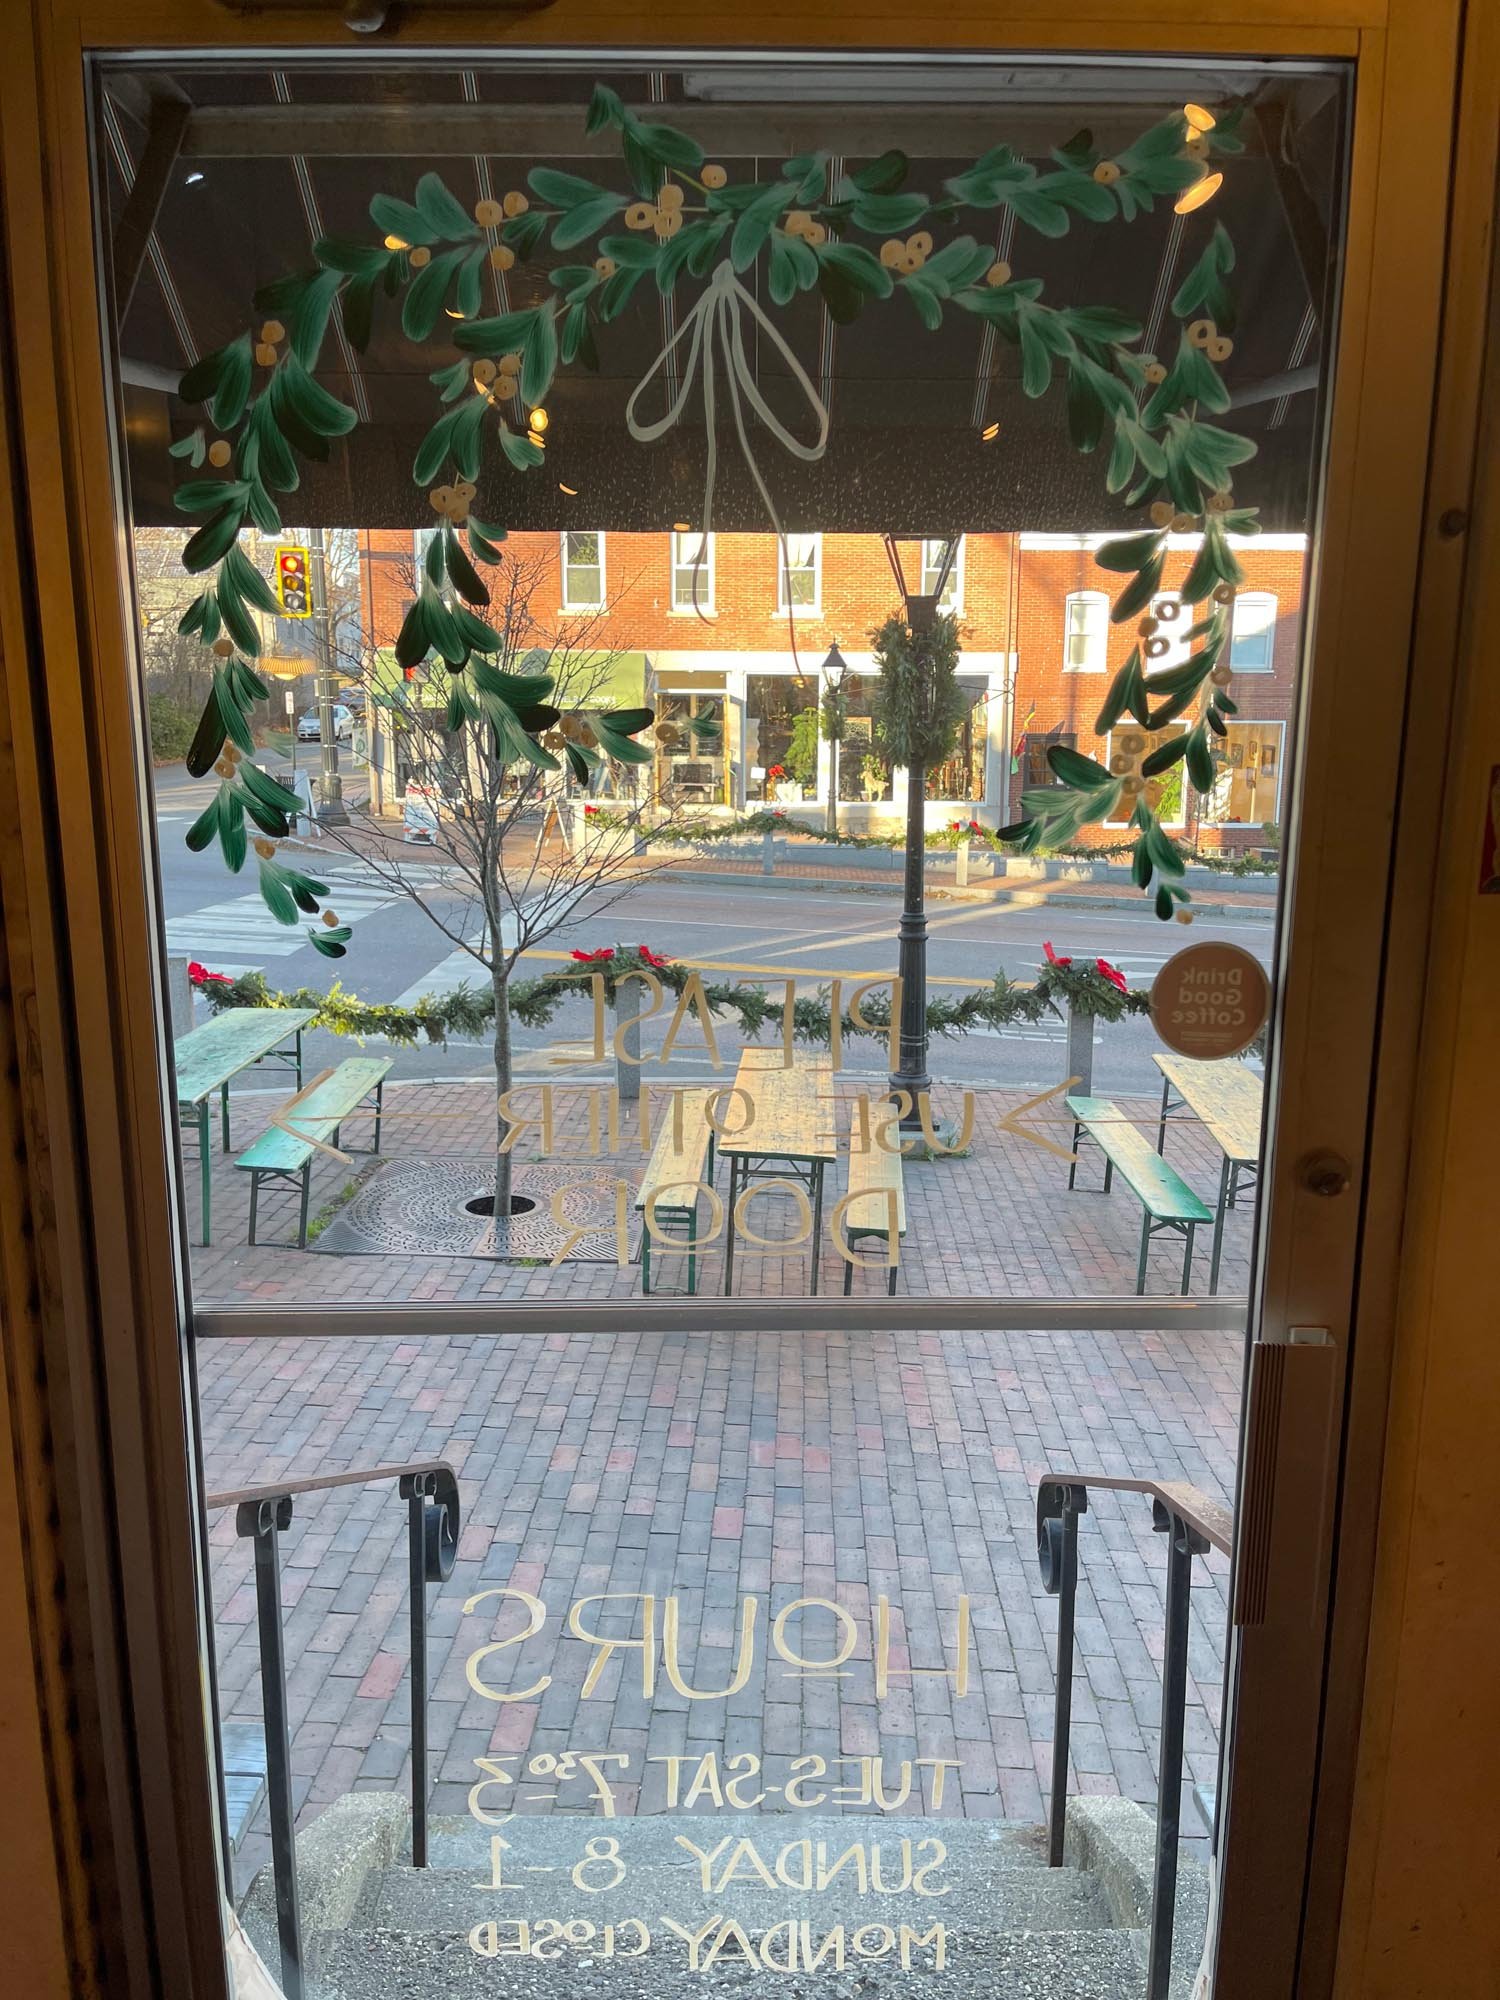 Drink
Good
Coffee
PLEASE
USE OTHER
DOOR
HOURS
TUES-SAT 7³⁰-3
SUNDAY 8-1
MONDAY CLOSED